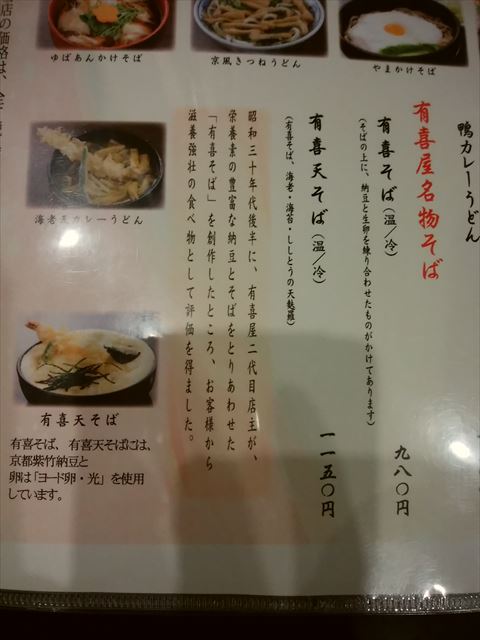 ゆばあんかけそば
京風きつねうどん
やまかけそば
鴨カレーうどん
有喜屋名物そば
有喜そば（温／冷）
九八〇円
（そばの上に、納豆と生卵を練り合わせたものがかけてあります）
有喜天そば（温／冷）
一一五〇円
（有喜そば、海老・海苔・ししとうの天麩羅）
昭和三十年代後半に、有喜屋二代目店主が、
栄養素の豊富な納豆とそばをとりあわせた
「有喜そば」を創作したところ、お客様から
滋養強壮の食べ物として評価を得ました。
海老天カレーうどん
有喜天そば
有喜そば、有喜天そばには、
京都紫竹納豆と
卵は「ヨード卵・光」を使用
しています。
店の価格は、